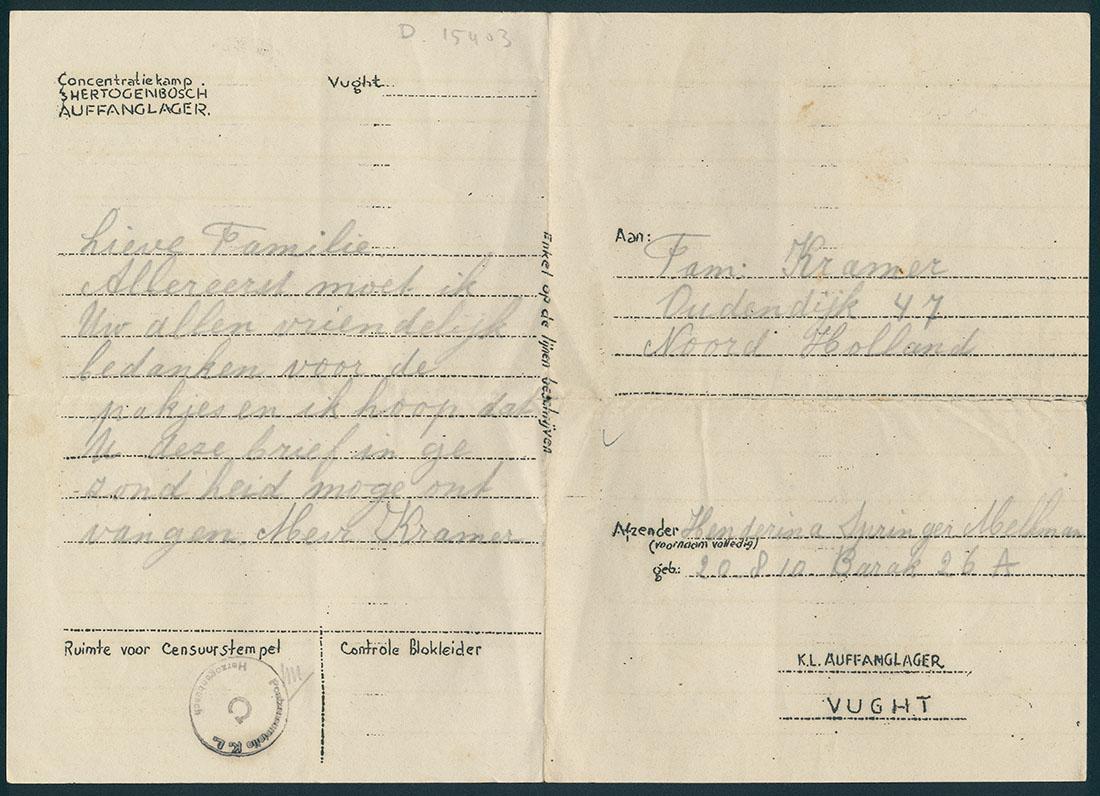 D. 15403
Concentratiekamp.
SHERTOGENBOSCH
AUFFANGLAGER.
Vught
Lieve Familie
Allereerst moet ik
Uw allen vriendelijk
bedanken voor de
pakjes en ik hoop dat
U deze brief in ge
zond heid moge ont
vangen Mevr Kramer
Enkel op de lijnen beschrijven
Ruimte voor Censuurstempel
Controle Blokleider
Herzogenbusch
K. L.
Aan:
Fam: Kramer
Oudendijk 47
Noord Holland
Afzender Henderina Springer Melkman
(voornaam volledig)
geb.: 20 8 10 Barak 26 A
K.L. AUFFANGLAGER
VUGHT